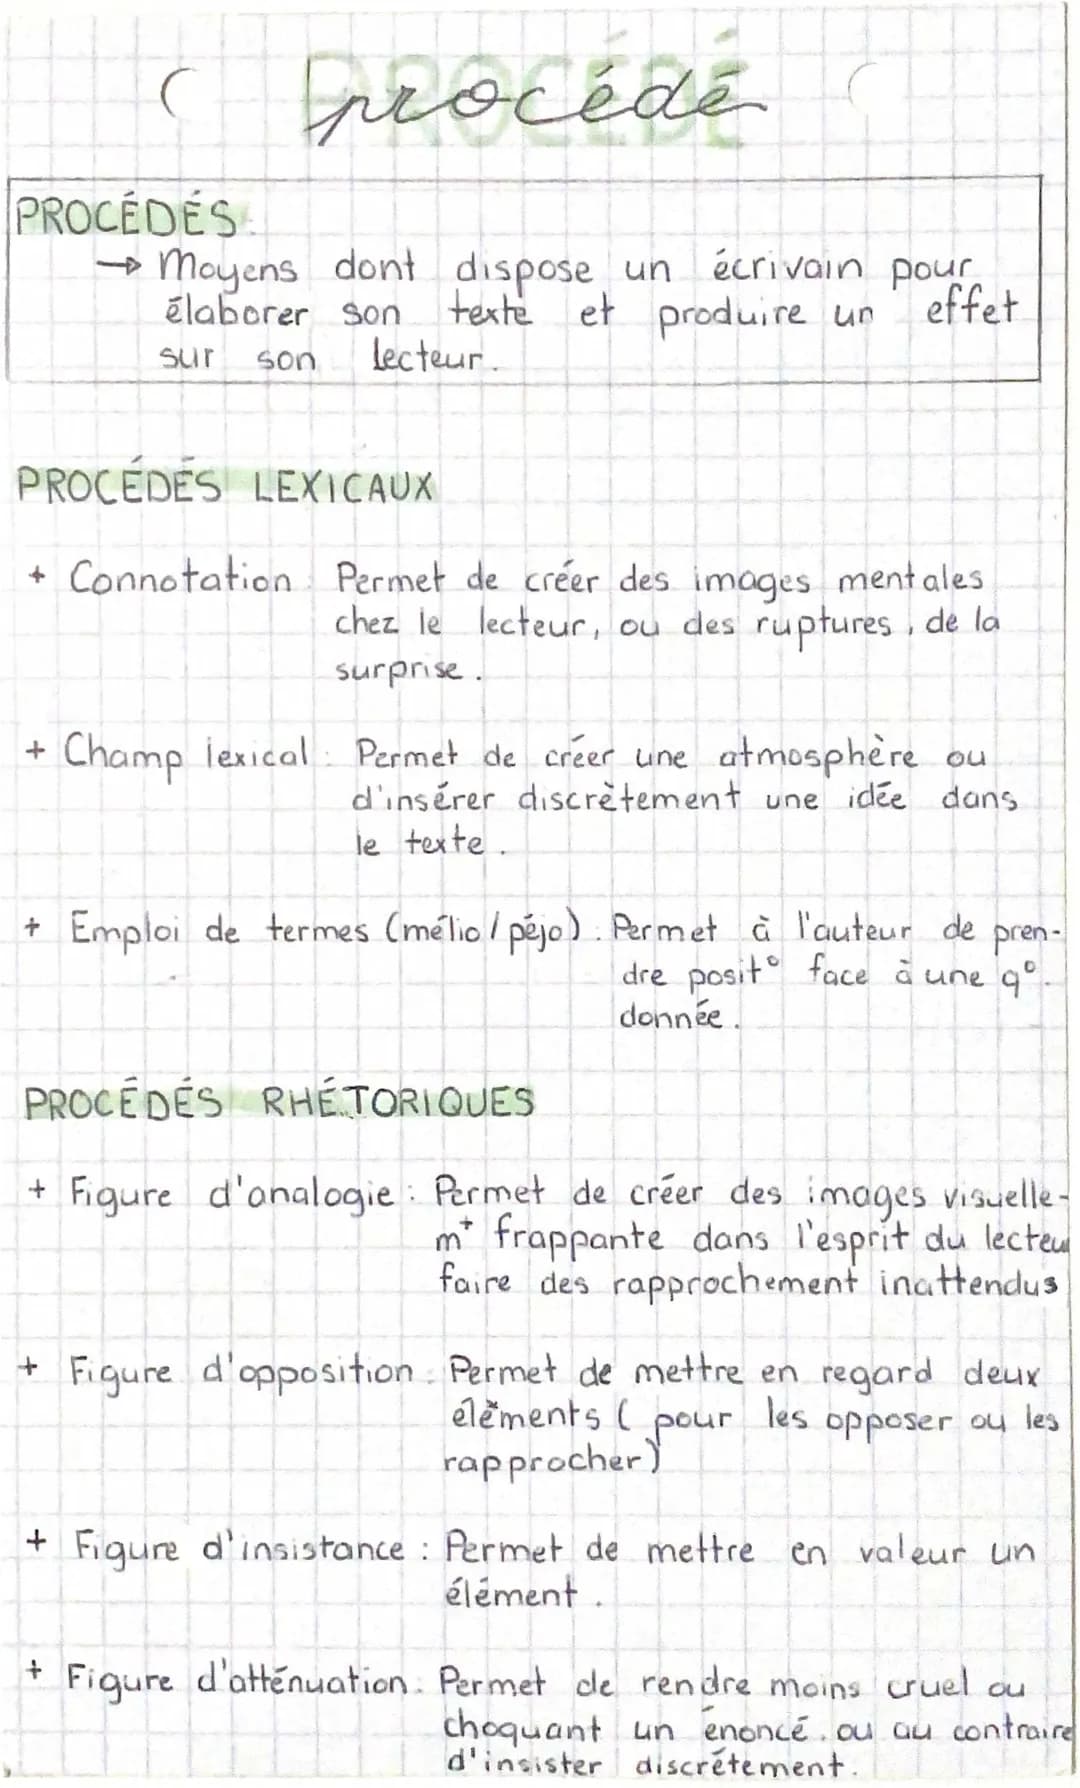 PROCÉDÉ
procédé
PROCÉDÉS
→ Moyens dont dispose un écrivain pour
élaborer son texte et produire un effet
sur son lecteur.
PROCÉDÉS LEXICAUX
+ Connotation : Permet de créer des images mentales
chez le lecteur, ou des ruptures, de la
surprise.
+ Champ lexical : Permet de créer une atmosphère ou
d'insérer discrètement une idée dans
le texte.
+ Emploi de termes (mélio / péjo) : Permet à l'auteur de pren-
dre posit° face à une q°
donnée.
PROCÉDÉS RHÉTORIQUES
+ Figure d'analogie : Permet de créer des images visuelle-
m^t frappante dans l'esprit du lecteur
faire des rapprochement inattendus
+ Figure d'opposition : Permet de mettre en regard deux
éléments ( pour les opposer ou les
rapprocher)
+ Figure d'insistance : Permet de mettre en valeur un
élément.
+ Figure d'atténuation : Permet de rendre moins cruel ou
choquant un énoncé ou au contraire
d'insister discrétement.